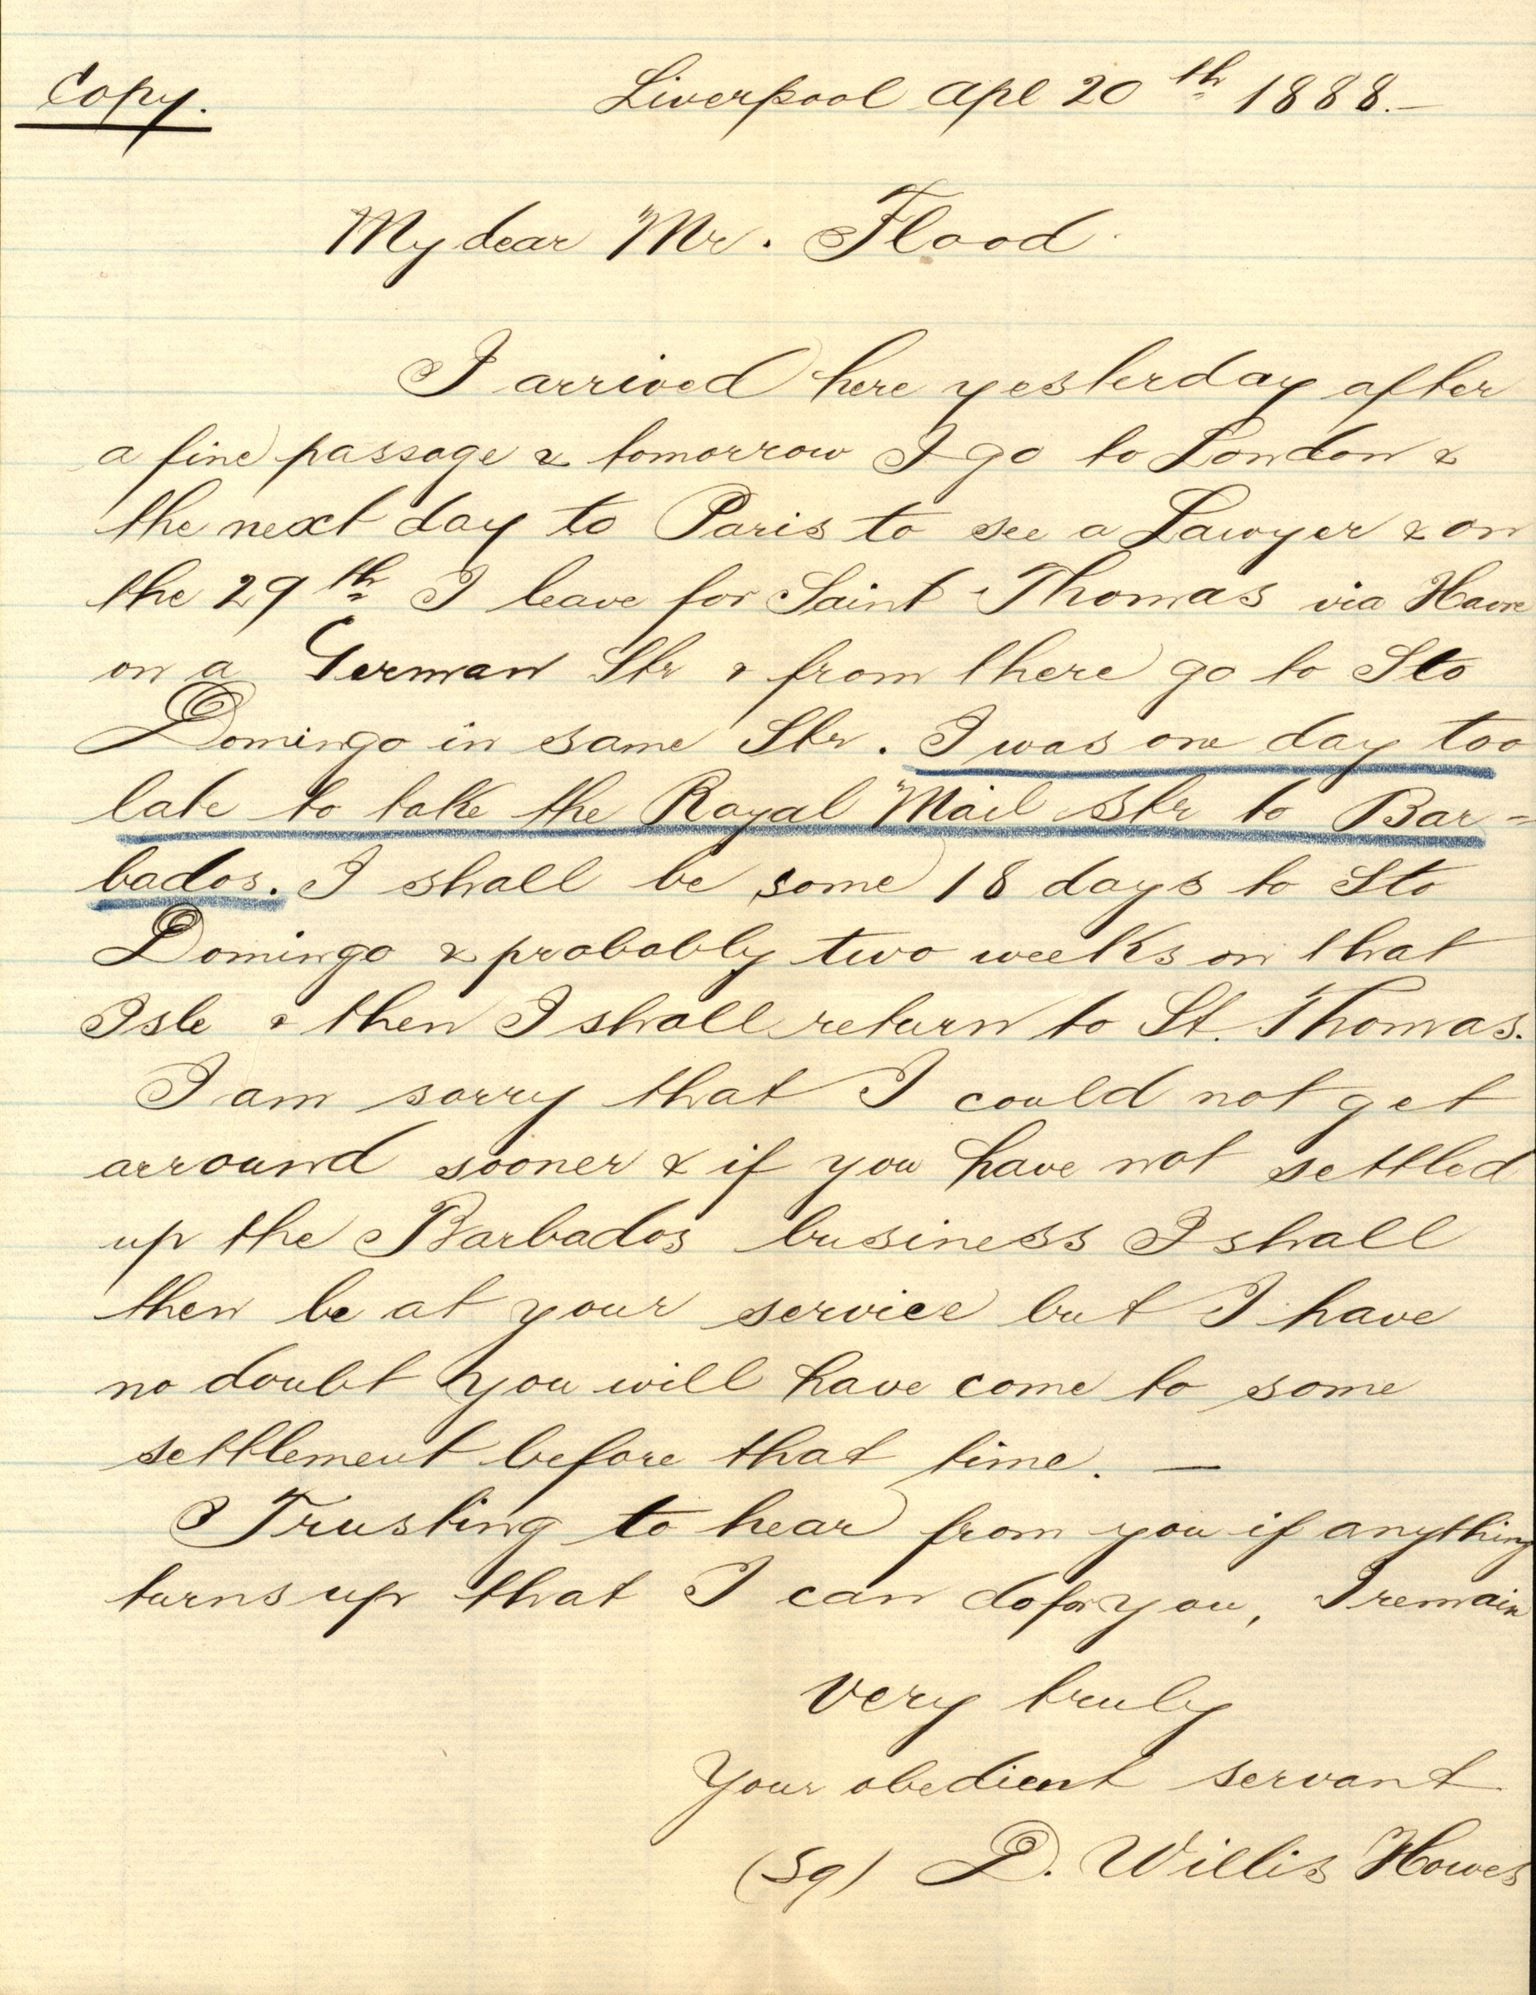 Copy.
Liverpool Apl 20th 1888.—
My dear Mr. Flood
I arrived here yesterday after
a fine passage & tomorrow I go to London &
the next day to Paris to see a Lawyer & on
the 29th I leave for Saint Thomas via Havre
on a German Str & from there go to Sto
Domingo in same Str. I was one day too
late to take the Royal Mail Str to Bar=
bados. I shall be some 18 days to Sto
Domingo & probably two weeks on that
Isle & then I shall return to St. Thomas.
I am sorry that I could not get
arround sooner & if you have not settled
up the Barbados business I shall
then be at your service but I have
no doubt you will have come to some
settlement before that time. —
Trusting to hear from you if anything
turns up that I can do for you, I remain
very truly
Your obedient servant
(Sg) D. Willis Howes